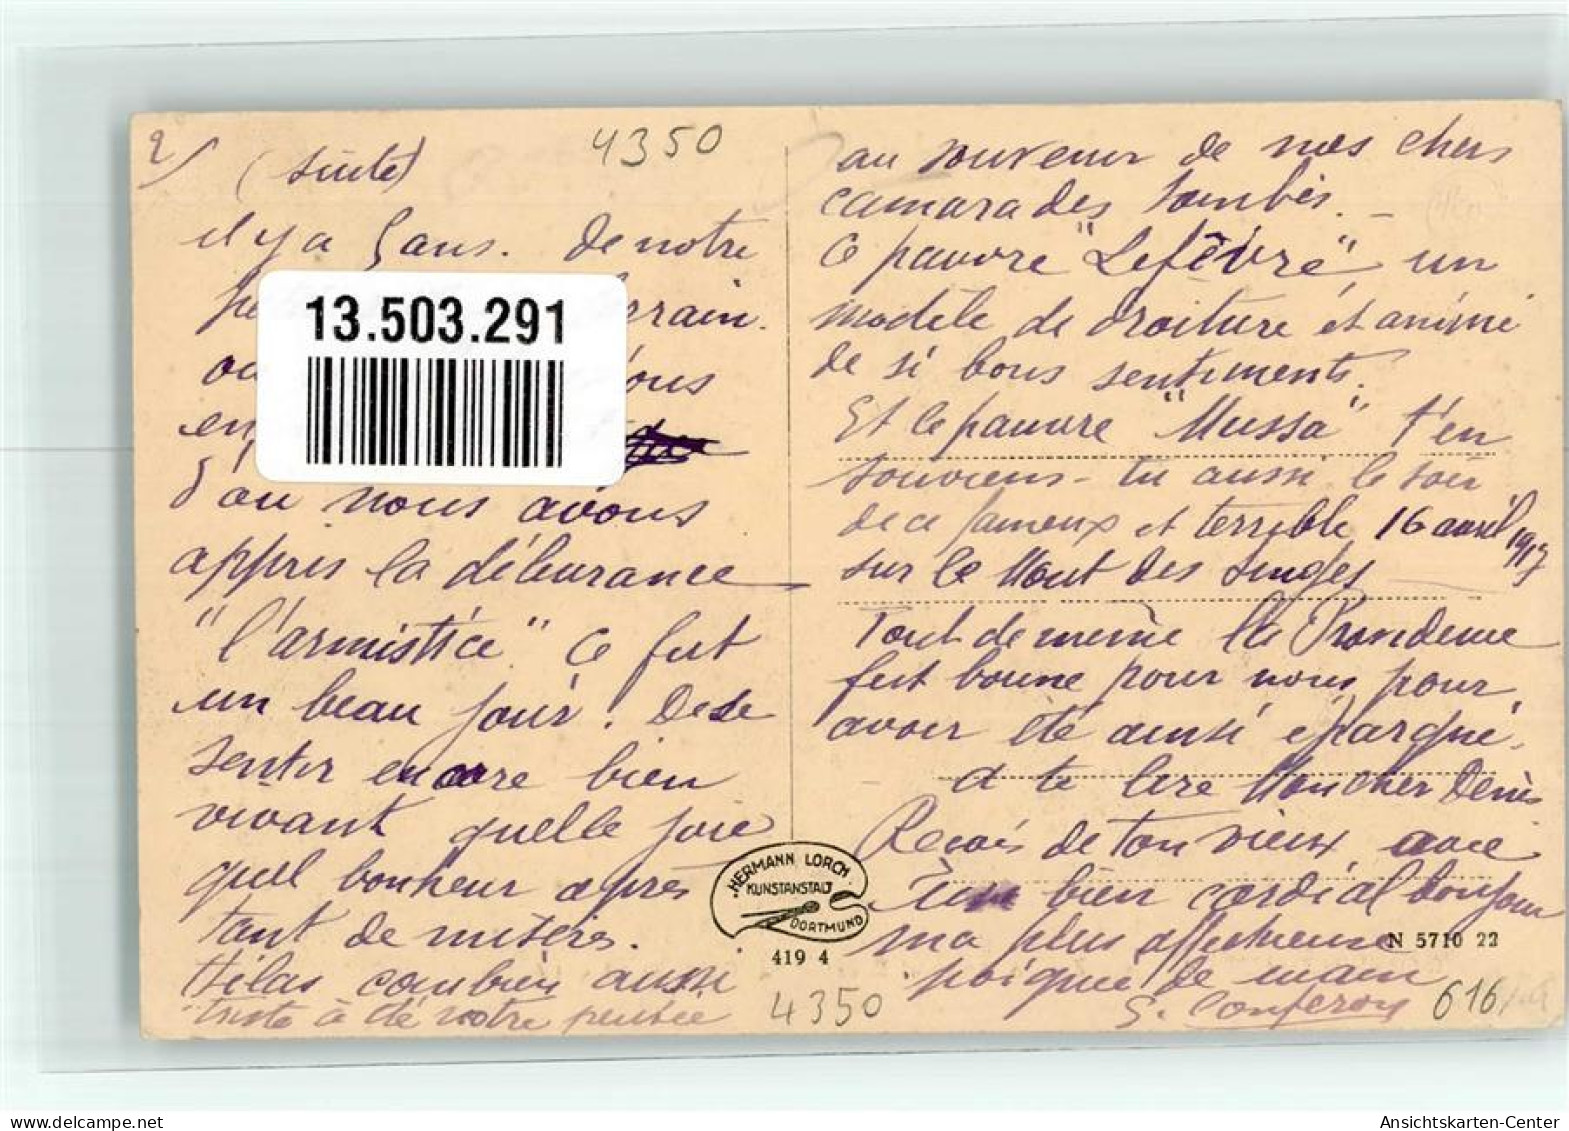 2/
(suite)
4350
il y a 5 ans. De notre
rrain.
13.503.291
en
d'où nous avons
appris la délivrance
"l'armistice" Ce fut
un beau jour! De se
sentir encore bien
vivant quelle joie
quel bonheur après
tant de misères.
Hélas combien aussi
triste a été notre pensée
au souvenir de nos chers
camarades tombés. -
Ce pauvre "Lefèvre", un
modèle de droiture et animé
de si bons sentiments.
Et le pauvre "Mussa" t'en
souviens-tu aussi le soir
de ce fameux et terrible 16 avril 1917
sur le Mont des Singes
Tout de même la Providence
fut bonne pour nous pour
avoir été ainsi épargné.
A te lire Mon cher Denis
Reçois de ton vieux
bien cordial bonjour
ma plus affectueuse
poignée de main
G.
HERMANN LORCH
KUNSTANSTALT
DORTMUND
419 4
N 5710 22
4350
616
Ansichtskarten-Center